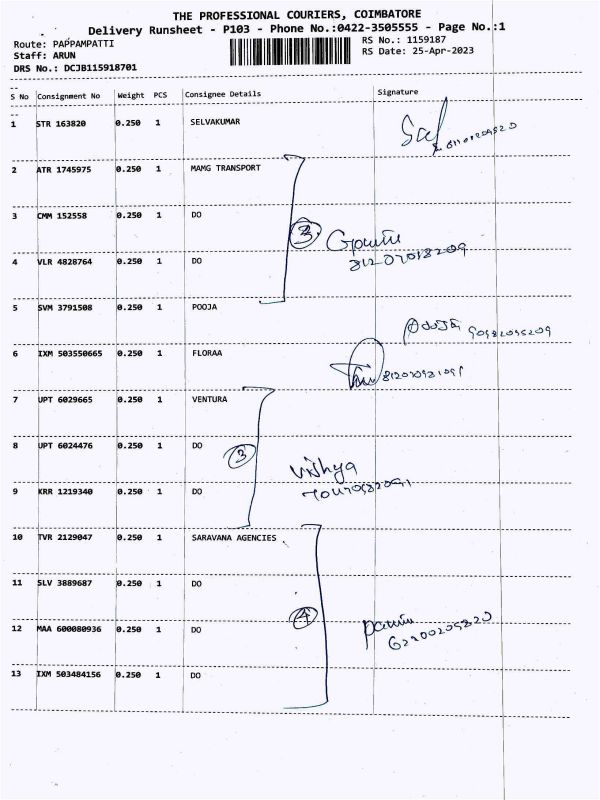 THE PROFESSIONAL COURIERS, COIMBATORE
Delivery Runsheet - P103 - Phone No.:0422-3505555 - Page No.:1
Route: PAPPAMPATTI RS No.: 1159187
Staff: ARUN RS Date: 25-Apr-2023
DRS No.: DCJB115918701
S No Consignment No Weight PCS Consignee Details Signature
1 STR 163820 0.250 1 SELVAKUMAR
2 ATR 1745975 0.250 1 MAMG TRANSPORT
3 CMM 152558 0.250 1 DO
3
4 VLR 4828764 0.250 1 DO
5 SVM 3791508 0.250 1 POOJA
6 IXM 503550665 0.250 1 FLORAA
7 UPT 6029665 0.250 1 VENTURA
8 UPT 6024476 0.250 1 DO
3
9 KRR 1219340 0.250 1 DO
10 TVR 2129047 0.250 1 SARAVANA AGENCIES
11 SLV 3889687 0.250 1 DO
4
12 MAA 600080936 0.250 1 DO
13 IXM 503484156 0.250 1 DO